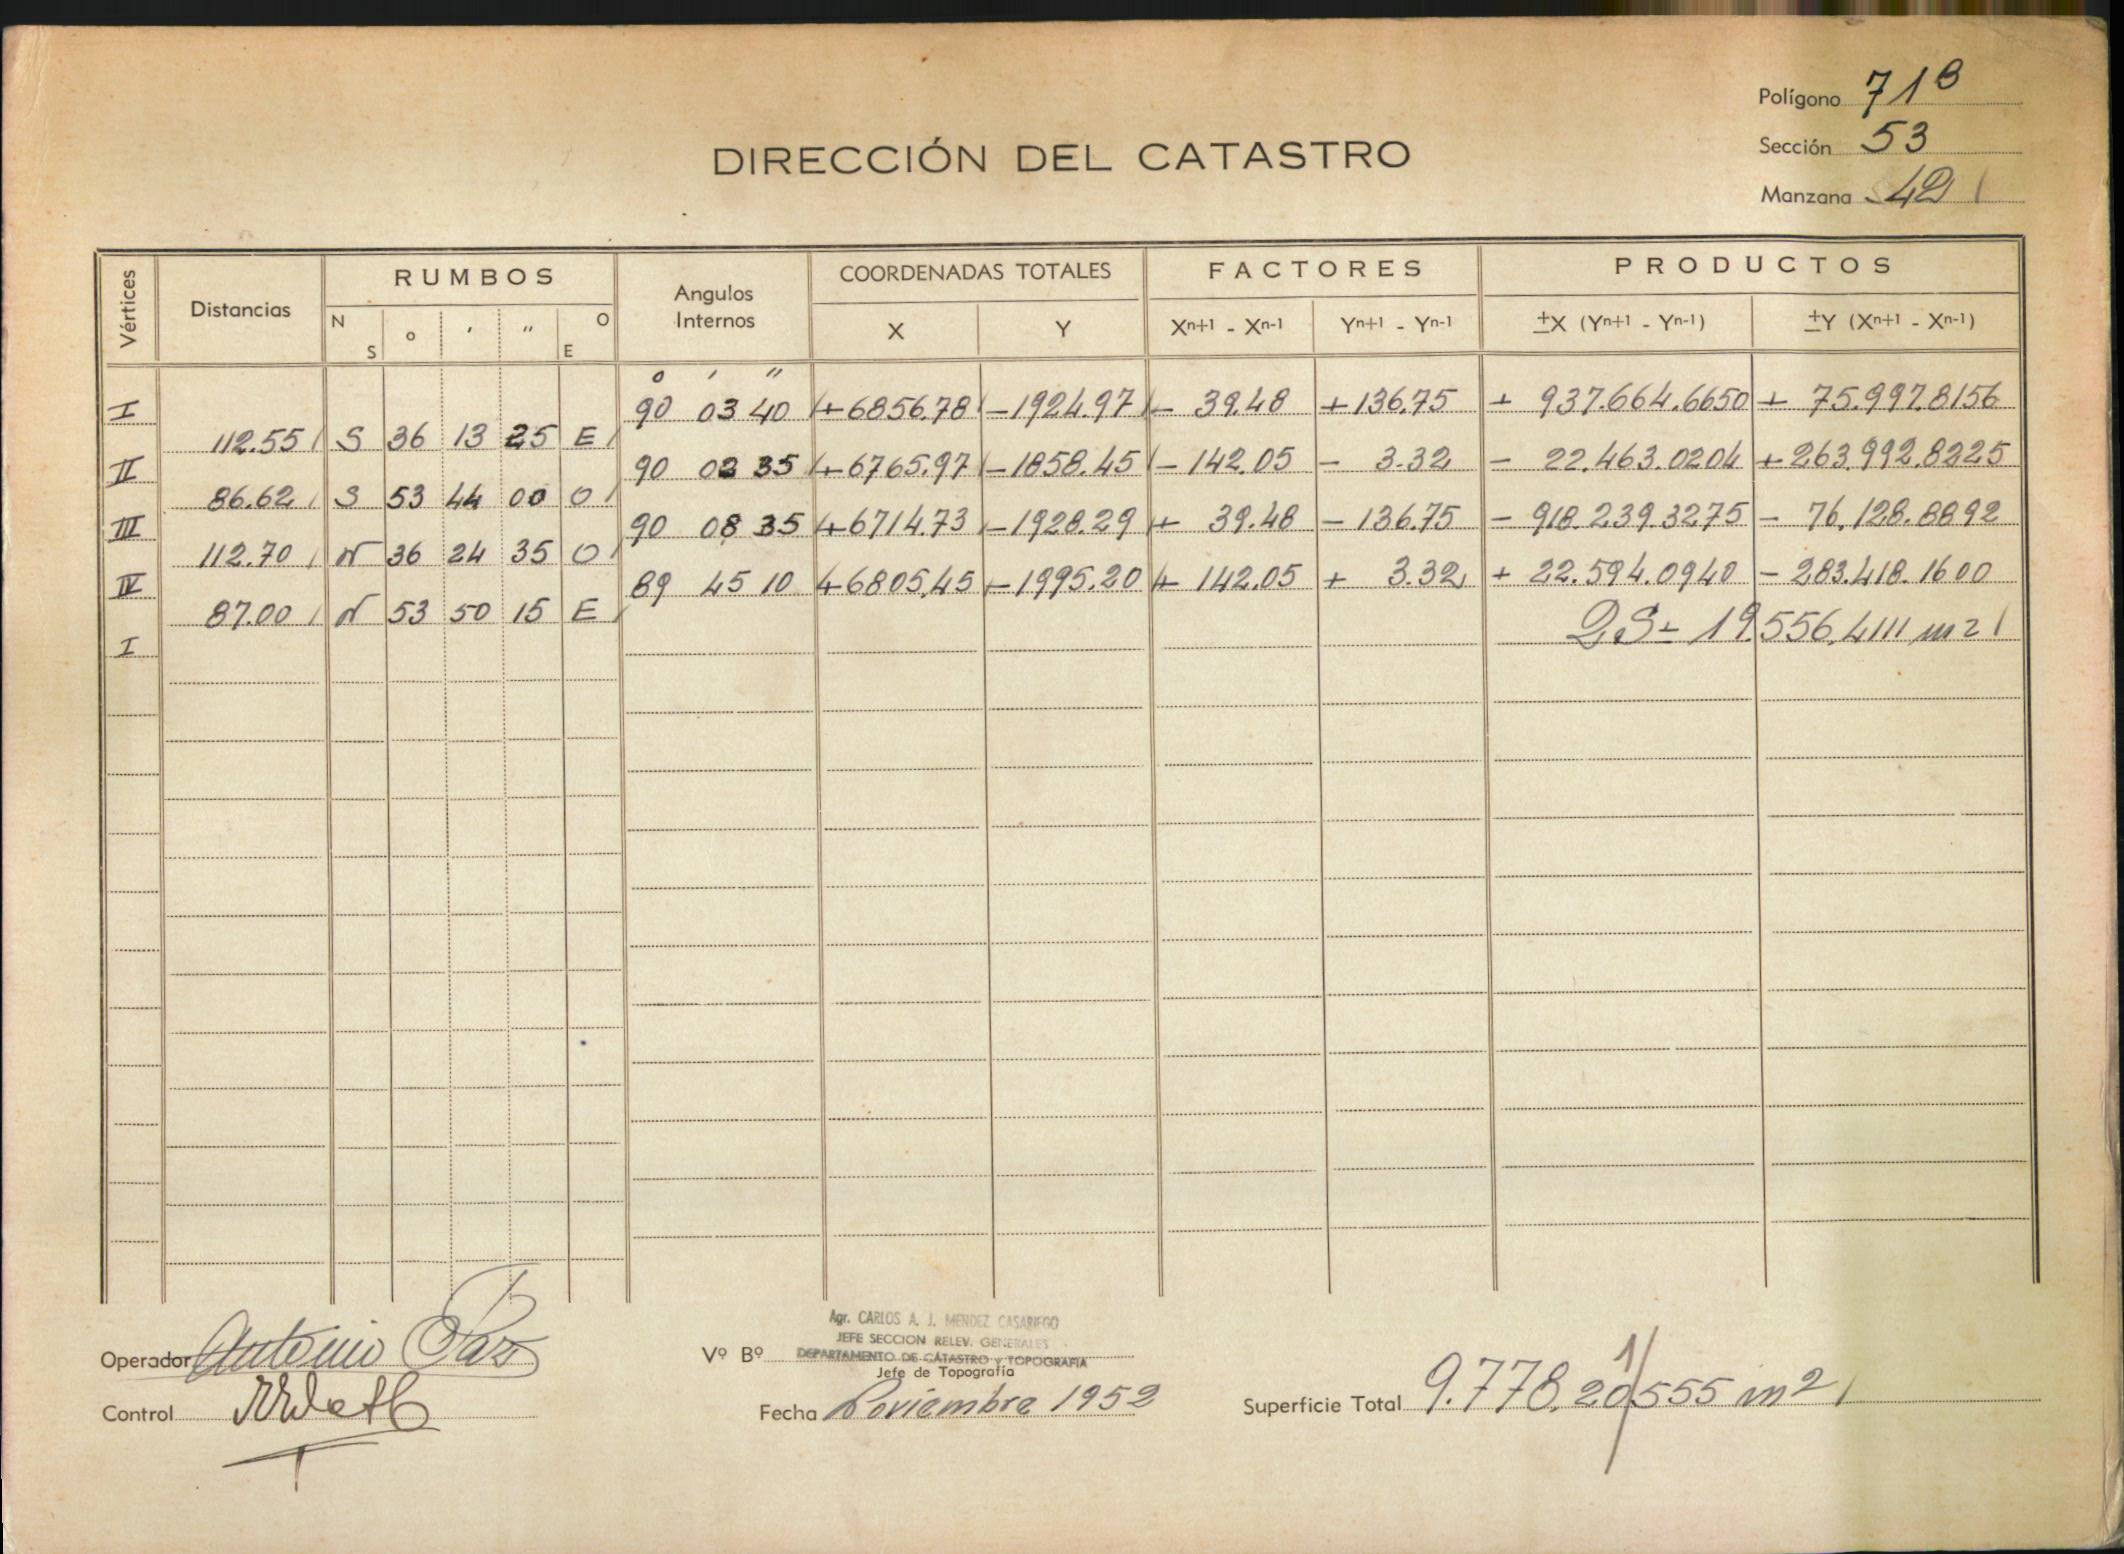 Polígono 71B
Sección 53
Manzana 421
DIRECCIÓN DEL CATASTRO
Vértices Distancias RUMBOS Angulos Internos COORDENADAS TOTALES FACTORES PRODUCTOS
N S ° ' " O E X Y Xn+1 - Xn-1 Yn+1 - Yn-1 ±X (Yn+1 - Yn-1) ±Y (Xn+1 - Xn-1)
° ' "
I 90 03 40 +6856.78 -1924.97 - 39.48 +136.75 + 937.664.6650 + 75.997.8156
112.55 S 36 13 25 E
II 90 02 35 +6765.97 -1858.45 -142.05 - 3.32 - 22.463.0204 +263.992.8225
86.62 S 53 44 00 O
III 90 08 35 +6714.73 -1928.29 + 39.48 -136.75 - 918.239.3275 - 76.128.8892
112.70 N 36 24 35 O
IV 89 45 10 +6805.45 -1995.20 + 142.05 + 3.32 + 22.594.0940 - 283.418.1600
87.00 N 53 50 15 E
2S= 19.556.4111 m2
I
Agr. CARLOS A. J. MENDEZ CASARIEGO
JEFE SECCION RELEV. GENERALES
Operador Antonio Paz Vº Bº DEPARTAMENTO DE CATASTRO Y TOPOGRAFIA
Jefe de Topografía
Control Fecha Noviembre 1952 Superficie Total 9.778.20555 m2
1